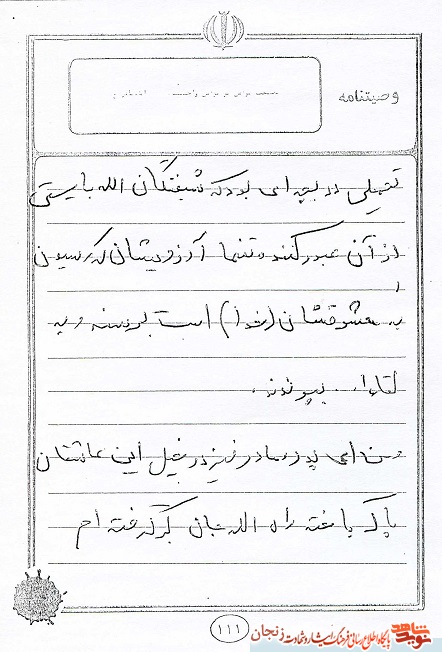 وصیتنامه
تحمیلی دریچه ای بود که شیفتگان الله بایستی
از آن عبور کنند و تنها آرزویشان که رسیدن
به معشوقشان (خدا) است برسند و به
لقاءا... بپیوندند.
من ای پدر و مادر نیز در خیل این عاشقان
پاک باخته راه الله جان گرفته ام
۱۱۱
نوید شاهد
پایگاه اطلاع رسانی فرهنگ ایثار و شهادت زنجان